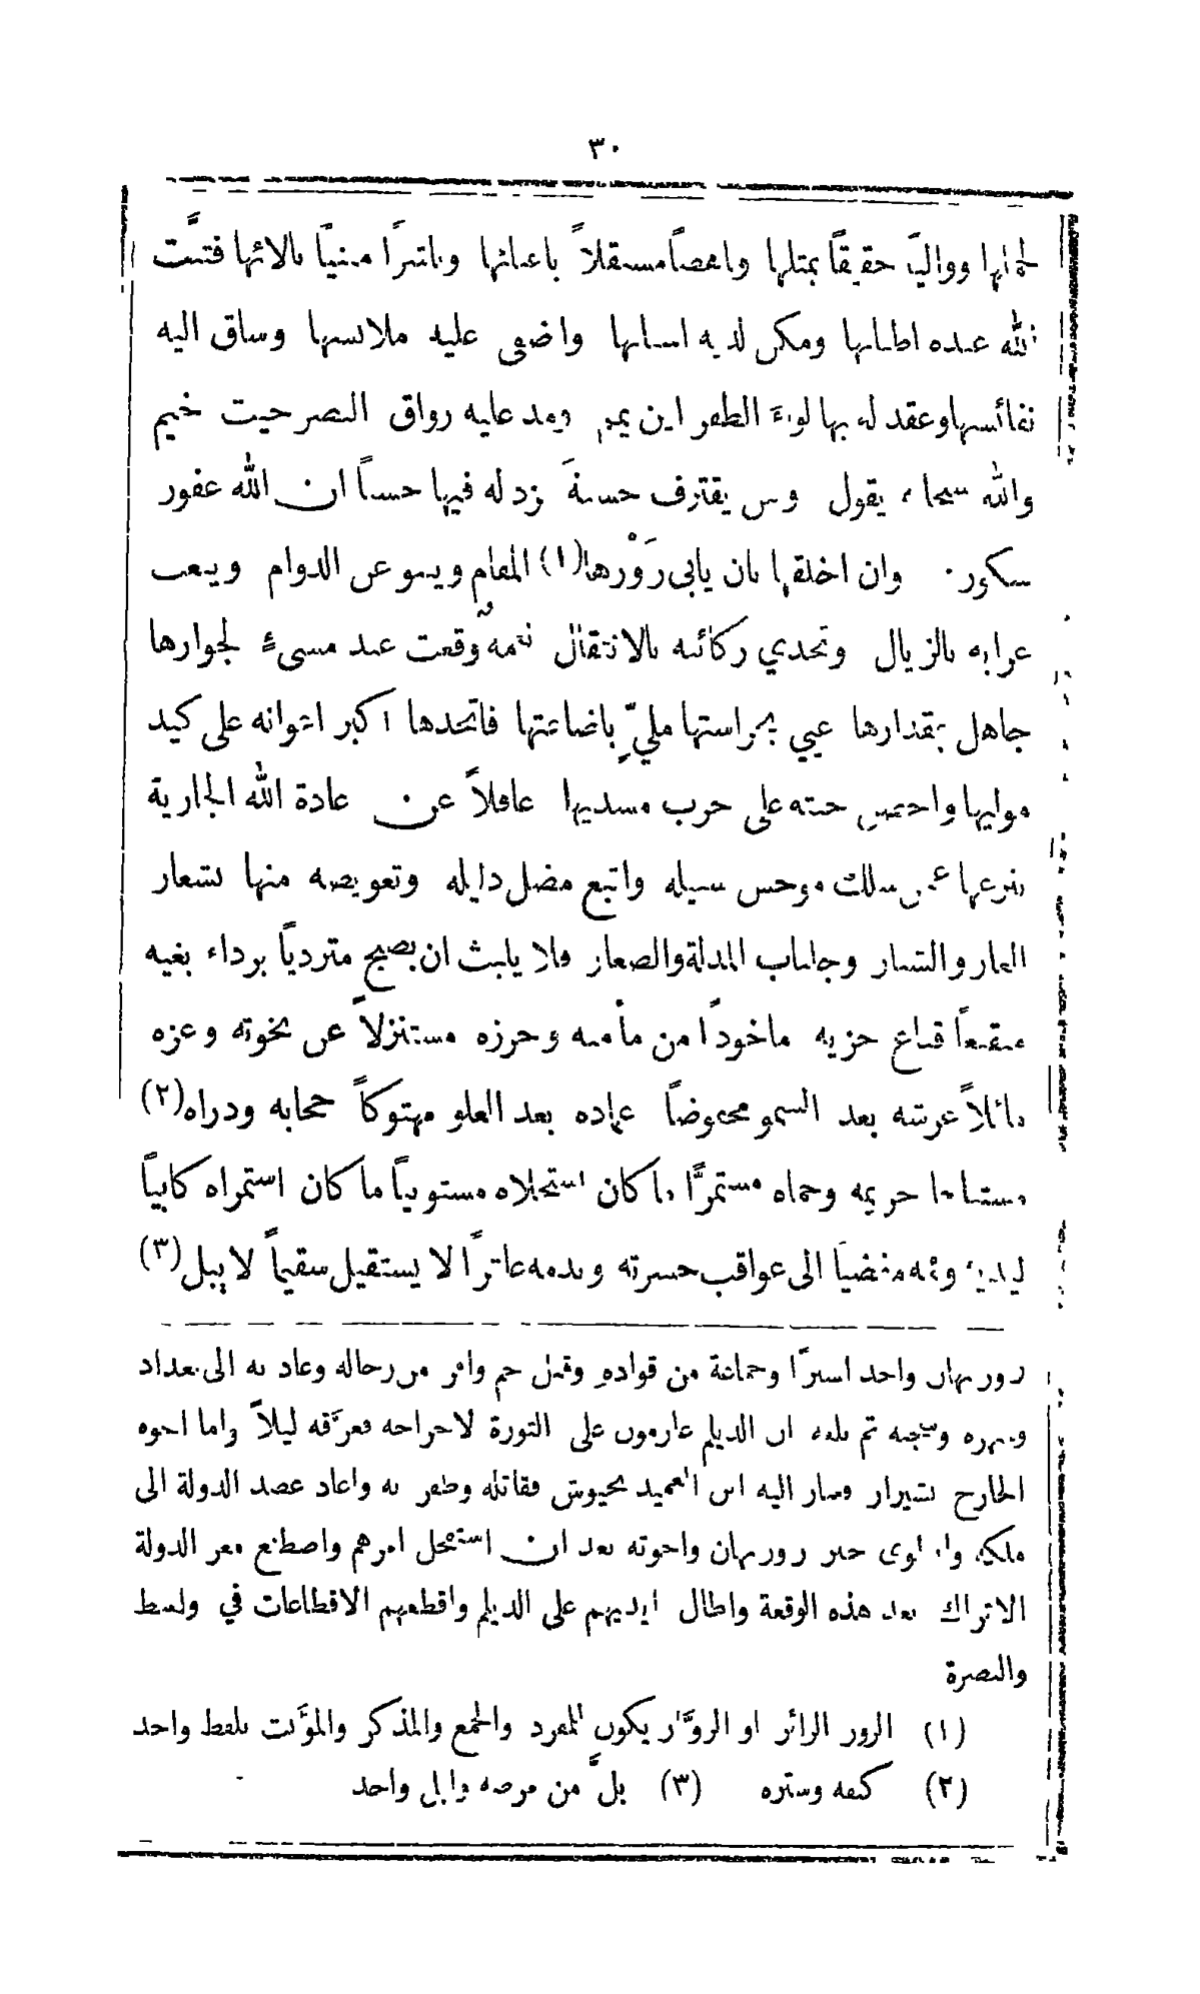 ٣٠
وواليًا حقيقًا بمثلها وناهضًا مستقلاً باعبائها وناشرًا مثنيًا بالائها فثبَّت
الله عنده اطنابها ومكن لديه اسبابها واضفى عليه ملابسها وساق اليه
نفائسها وعقد له بها لواءَ الظفر اين يمم ومد عليه رواق النصر حيث خيم
والله سبحانه يقول ومن يقترف حسنةَ نزد له فيها حسناً ان الله غفور
شكور. وان اخلقها بان يابى زَوْرها (١) المقام وينبو عن الدوام وينعب
غرابه بالزيال وتحدي ركائبه بالانتقال نعمةٌ وقعت عند مسيءٍ لجوارها
جاهل بمقدارها عييٍ بحراستها مليٍّ باضاعتها فاتخذها اكبر اعوانه على كيد
موليها واحصن جنته على حرب مسديها غافلاً عن عادة الله الجارية
بنزعها عمن سلك موحس سبيله واتبع مضل دليله وتعويضه منها بشعار
العار والشنار وجلباب المذلة والصغار فلا يلبث ان يصبح مترديًا برداء بغيه
مقنعاً قناع خزيه ماخوذًا من مأمنه وحرزه مستنزلاً عن نخوته وعزه
مائلاً عرشه بعد السمو مخفوضاً عماده بعد العلو مهتوكاً حجابه وذراه (٢)
مستباحا حريمه وحماه مستمرًّا ما كان استحلاه مستوبئًا ما كان استمراه كابيًا
ليديه وفمه مفضيًا الى عواقب حسرته وندمه عاثرًا لا يستقيل سقيماً لا يبل (٣)
روزبهان واخذ اسيرًا وجماعة من قواده وقتل جم وافر من رجاله وعاد به الى بغداد
وشهره وسجنه ثم بلغه ان الديلم عازمون على الثورة لاخراجه فغرَّقه ليلاً واما اخوه
الخارج بشيراز فسار اليه ابن العميد بجيوش فقاتله وظفر به واعاد عضد الدولة الى
ملكه وانطوى خبر روزبهان واخوته بعد ان استفحل امرهم واصطنع معز الدولة
الاتراك بعد هذه الوقعة واطال ايديهم على الديلم واقطعهم الاقطاعات في واسط
والبصرة
(١) الزور الزائر او الزوَّار يكون للمفرد والجمع والمذكر والمؤَنث بلفظ واحد
(٢) كنفه وستره (٣) بلَّ من مرضه وابل واحد